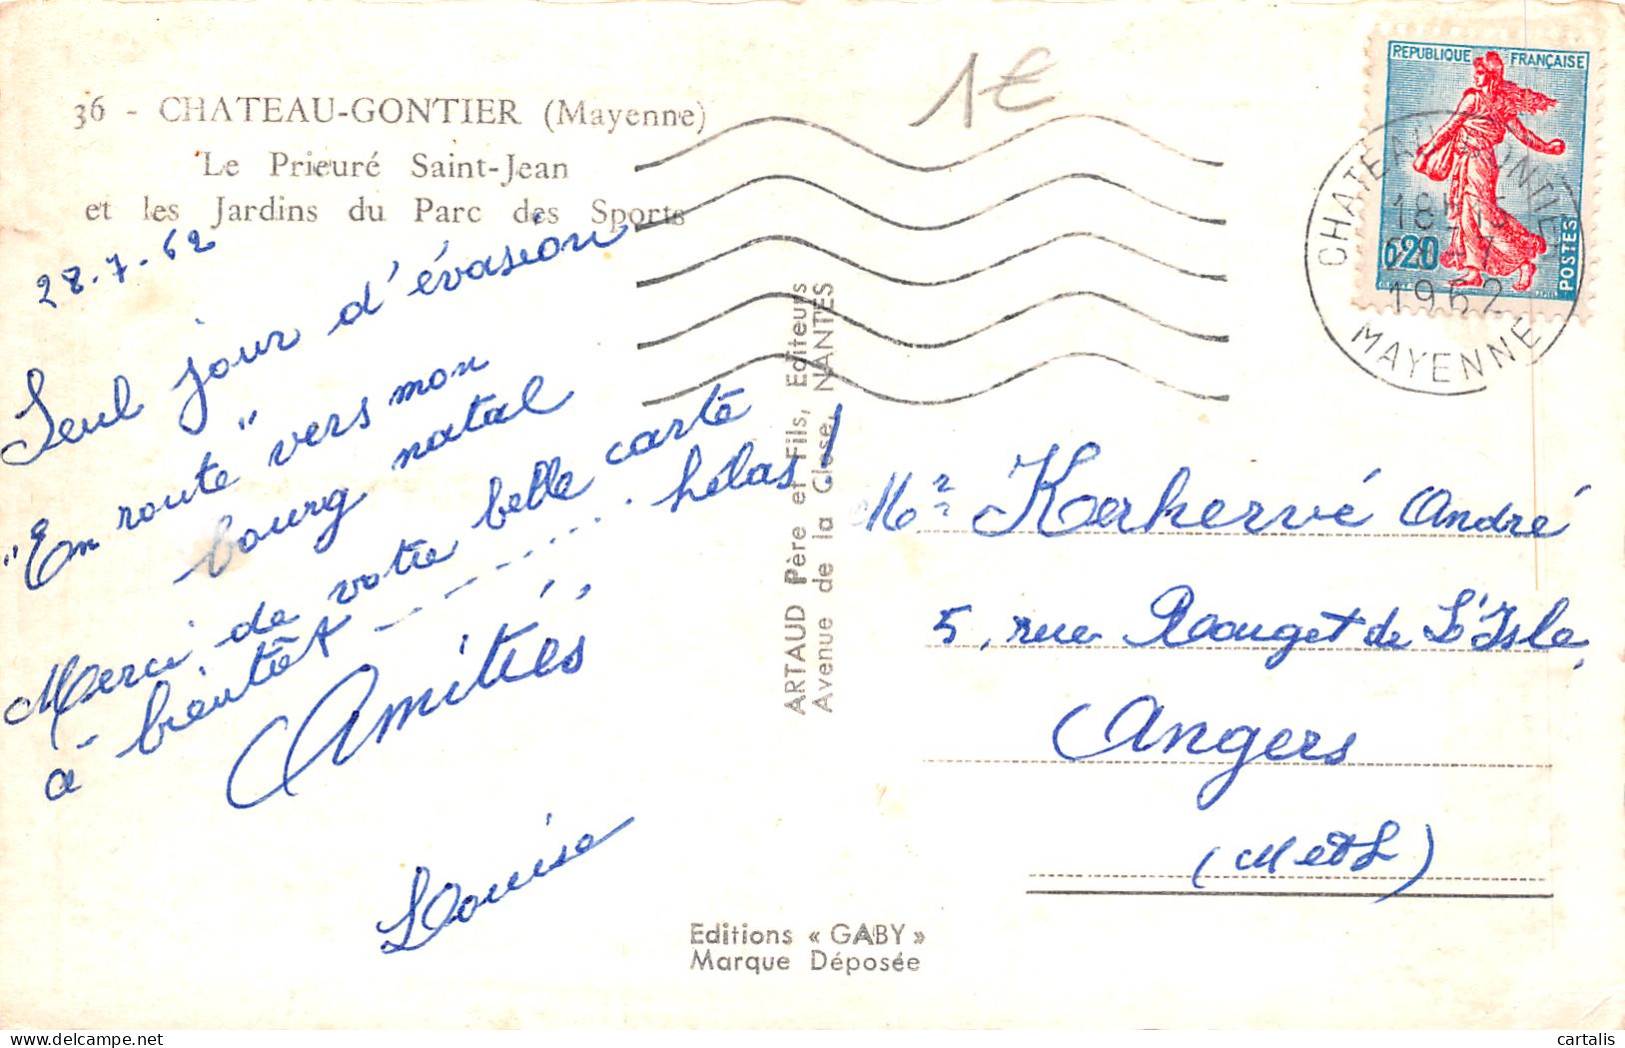 36 - CHATEAU-GONTIER (Mayenne)
Le Prieuré Saint-Jean
et les Jardins du Parc des Sports
1€
REPUBLIQUE FRANÇAISE
0,20
POSTES
CHATEAU GONTIER
18H15
-7
1962
MAYENNE
28-7-62
Seul jour d'évasion
"En route" vers mon
bourg natal
Merci, de votre belle carte
à - bientôt hélas!
Amitiés
Louise
ARTAUD Père et Fils, Editeurs
Avenue de la Close, NANTES
Mr Kerhervé André
5, rue Rouget de L'Isle,
Angers
(M et L)
Editions « GABY »
Marque Déposée
cartalis